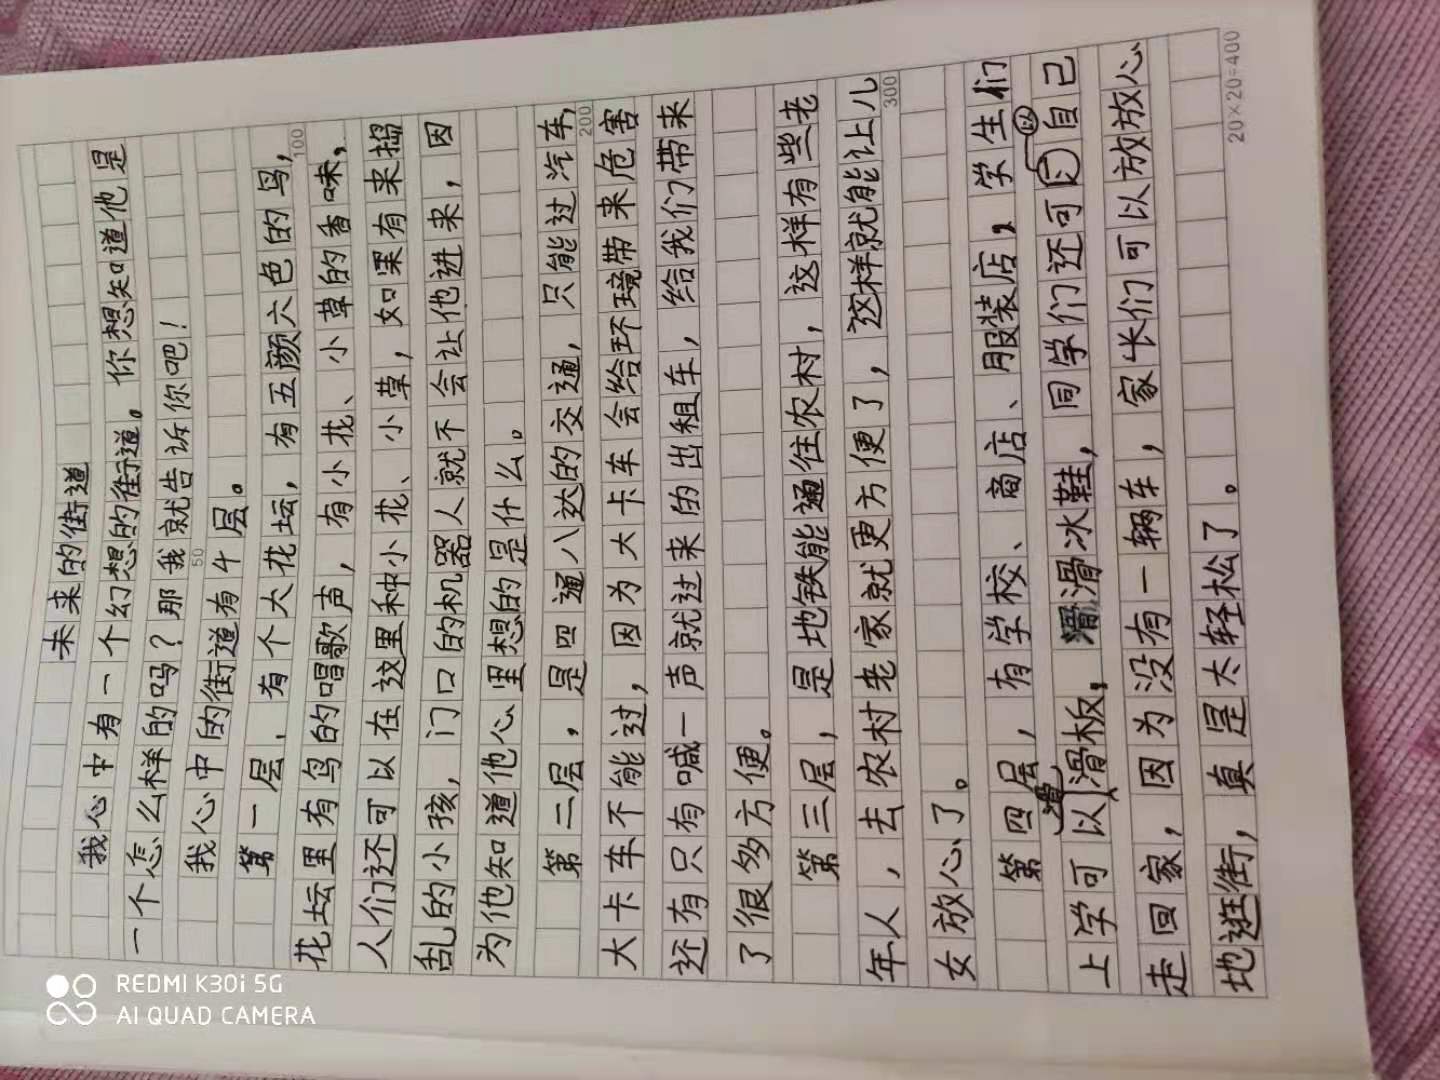 未来的街道
我心中有一个幻想的街道。你想知道他是
一个怎么样的吗？那我就告诉你吧！
50
我心中的街道有4层。
第一层，有个大花坛，有五颜六色的鸟，
100
花坛里有鸟的唱歌声，有小花、小草的香味，
人们还可以在这里种小花、小草，如果有来捣
乱的小孩，门口的机器人就不会让他进来，因
为他知道他心里想的是什么。
第二层，是四通八达的交通，只能过汽车，
200
大卡车不能过，因为大卡车会给环境带来危害
还有只有喊一声就过来的出租车，给我们带来
了很多方便。
第三层，是地铁能通往农村，这样有些老
年人，去农村老家就更方便了，这样就能让儿
300
女放心了。
第四层，有学校、商店、服装店，学生们
上学可以滑滑板，滑冰鞋，同学们还可以自己
走回家，因为没有一辆车，家长们可以放放心
地逛街，真是太轻松了。
20×20=400
REDMI K30i 5G
AI QUAD CAMERA